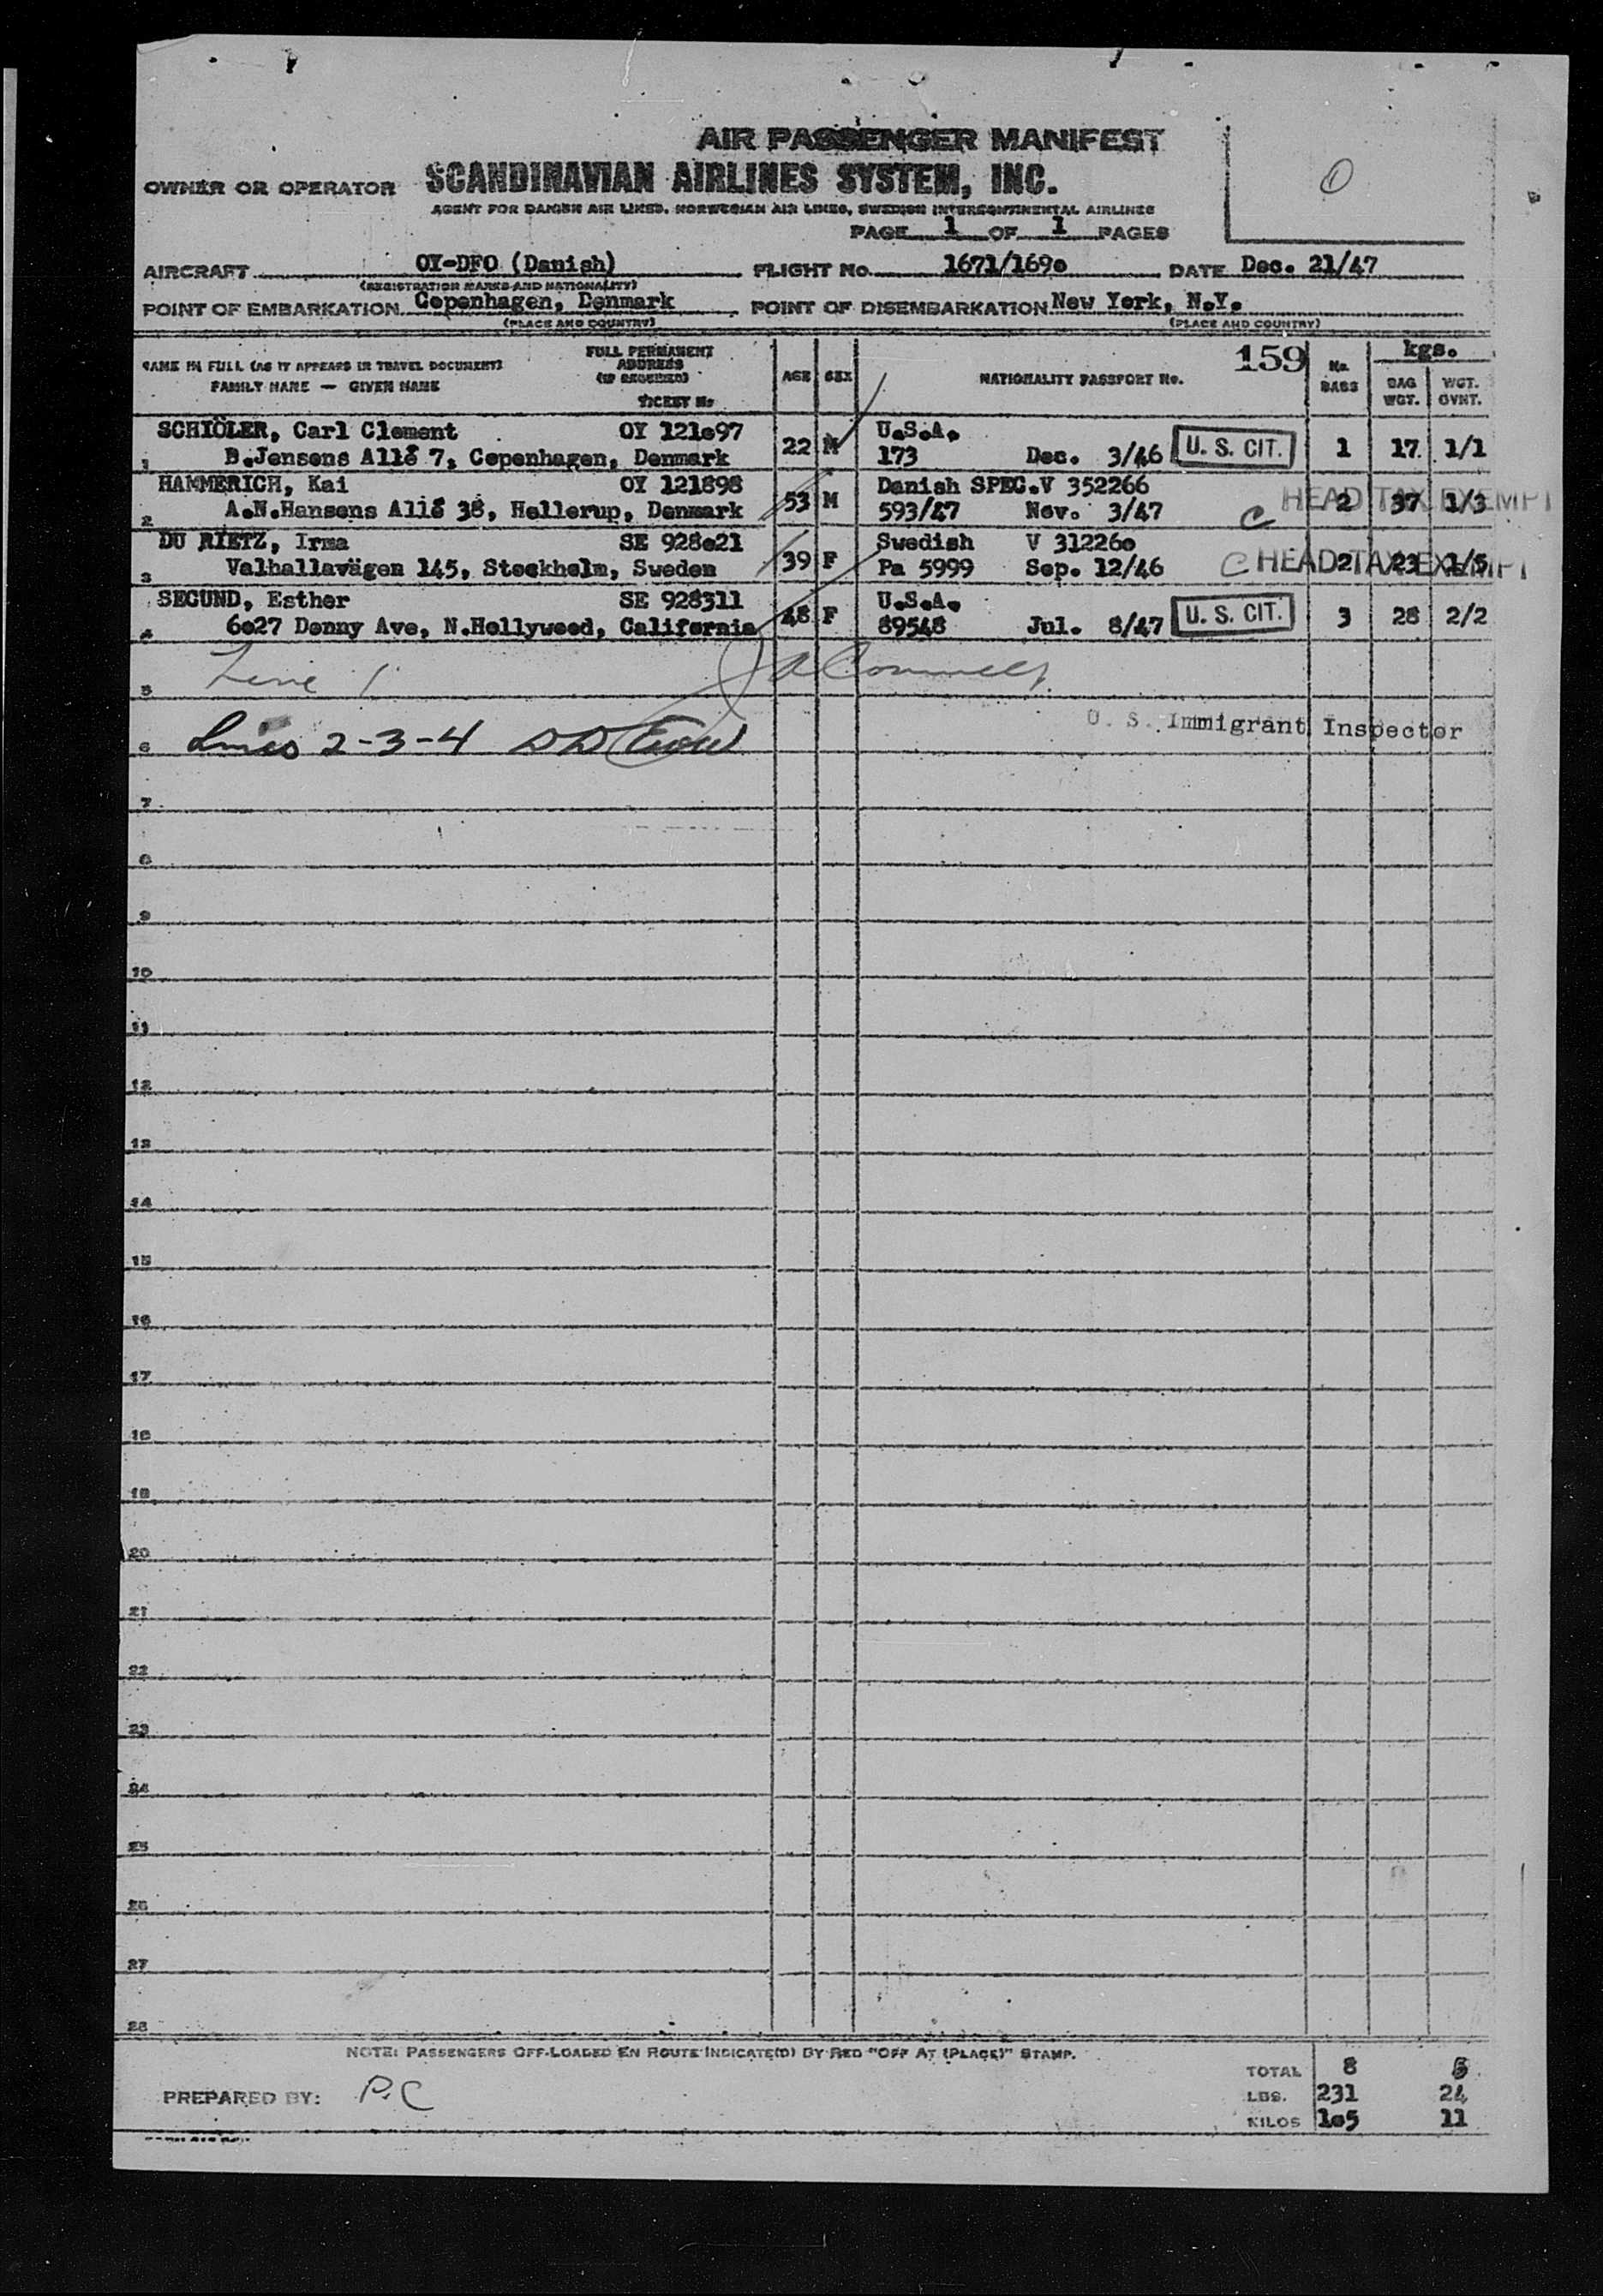 AIR PASSENGER MANIFEST
OWNER OR OPERATOR SCANDINAVIAN AIRLINES SYSTEM, INC.
AGENT FOR DANISH AIR LINES, NORWEGIAN AIR LINES, SWEDISH INTERCONTINENTAL AIRLINES
PAGE 1 OF 1 PAGES
AIRCRAFT OY-DFO (Danish) FLIGHT No. 1671/169o DATE Dec. 21/47
(REGISTRATION MARKS AND NATIONALITY)
POINT OF EMBARKATION Copenhagen, Denmark POINT OF DISEMBARKATION New York, N.Y.
(PLACE AND COUNTRY) (PLACE AND COUNTRY)
NAME IN FULL (AS IT APPEARS IN TRAVEL DOCUMENT) FULL PERMANENT ADDRESS (IF REQUIRED) 159 kgs.
FAMILY NAME — GIVEN NAME TICKET No AGE SEX NATIONALITY PASSPORT No. No. BAGS BAG WGT. WGT. OVHT.
SCHIÖLER, Carl Clement OY 121o97 U.S.A.
1 B.Jensens Allé 7, Copenhagen, Denmark 22 M 173 Dec. 3/46 U. S. CIT. 1 17 1/1
HAMMERICH, Kai OY 121898 Danish SPEC.V 352266 HEAD TAX EXEMPT
2 A.N.Hansens Allé 38, Hellerup, Denmark 53 M 593/47 Nov. 3/47 C 2 37 1/3
DU RIETZ, Irma SE 928o21 Swedish V 31226o
3 Valhallavägen 145, Stockholm, Sweden 39 F Pa 5999 Sep. 12/46 C HEAD TAX EXEMPT 2 23 1/5
SECUND, Esther SE 928311 U.S.A.
4 6o27 Denny Ave, N.Hollywood, California 48 F 89548 Jul. 8/47 U. S. CIT. 3 28 2/2
5 Line 1
6 Lines 2-3-4 U. S. Immigrant Inspector
7
8
9
10
11
12
13
14
15
16
17
18
19
20
21
22
23
24
25
26
27
28
NOTE: PASSENGERS OFF-LOADED EN ROUTE INDICATE(D) BY RED "OFF AT (PLACE)" STAMP.
TOTAL 8
PREPARED BY: P.C LBS. 231 24
KILOS 1o5 11